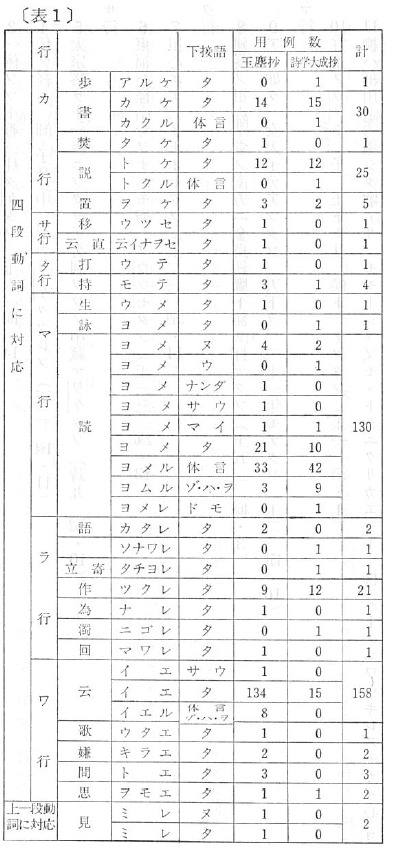 〔表1〕
行 下接語 用例数 計
玉塵抄 詩学大成抄
四段動詞に対応
カ行
歩 アルケ タ 0 1 1
書 カケ タ 14 15 30
カクル 体言 0 1
焚 タケ タ 1 0 1
説 トケ タ 12 12 25
トクル 体言 0 1
置 ヲケ タ 3 2 5
サ行
移 ウツセ タ 1 0 1
云直 云イナヲセ タ 1 0 1
タ行
打 ウテ タ 1 0 1
持 モテ タ 3 1 4
マ行
生 ウメ タ 1 0 1
詠 ヨメ タ 0 1 1
読 ヨメ ヌ 4 2 130
ヨメ ウ 0 1
ヨメ ナンダ 1 0
ヨメ サウ 1 0
ヨメ マイ 1 1
ヨメ タ 21 10
ヨメル 体言 33 42
ヨムル ゾ・ハ・ヲ 3 9
ヨメレ ドモ 0 1
ラ行
語 カタレ タ 2 0 2
ソナワレ タ 0 1 1
立寄 タチヨレ タ 0 1 1
作 ツクレ タ 9 12 21
為 ナレ タ 1 0 1
濁 ニゴレ タ 0 1 1
回 マワレ タ 1 0 1
ワ行
云 イエ サウ 1 0 158
イエ タ 134 15
イエル 体言 ゾ・ハ・ヲ 8 0
歌 ウタエ タ 1 0 1
嫌 キラエ タ 2 0 2
問 トエ タ 3 0 3
思 ヲモエ タ 1 1 2
上一段動詞に対応
見 ミレ ヌ 1 0 2
ミレ タ 1 0